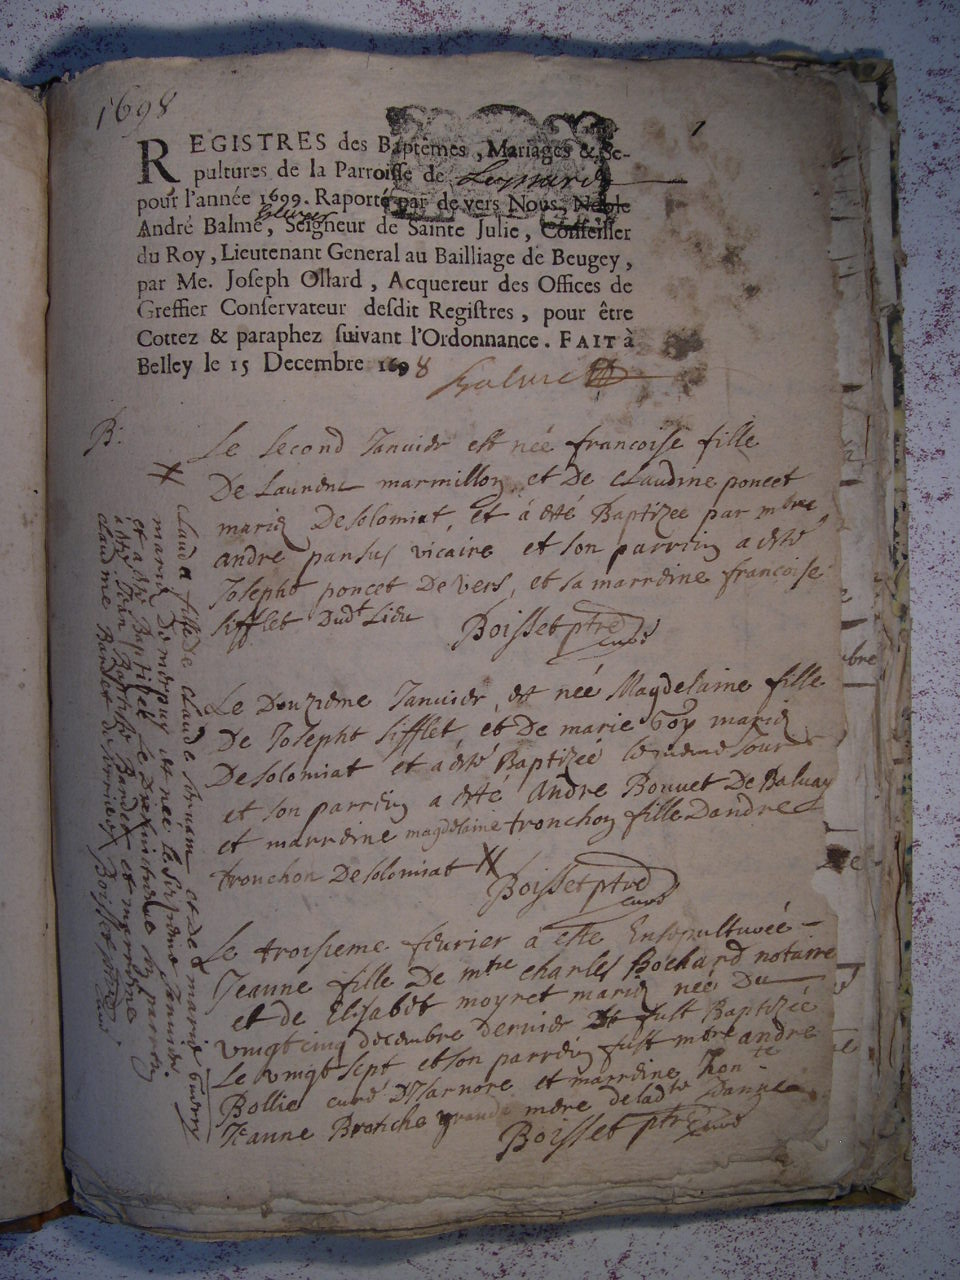 1698
1
REGISTRES des Baptêmes, Mariages & Se-
pultures de la Parroisse de Leyssard
pour l'année 1699. Raporté par devers Nous, Noble
André Balme, Seigneur de Sainte Julie, Conseiller
du Roy, Lieutenant General au Bailliage de Beugey,
par Me. Joseph Ollard, Acquereur des Offices de
Greffier Conservateur desdit Registres, pour être
Cottez & paraphez suivant l'Ordonnance. FAIT à
Belley le 15 Decembre 1698
Balme
B.
Le second Janvier est née francoise fille
De Laurent marmillon et De claudine poncet
mariez Desolomiat, et à esté Baptizée par mre
andre pansus vicaire et son parrein a esté
Josepht poncet De vers, et sa marreine francoise
sifflet Dudt Lieu
Boisset ptre curé
Le Douzieme Janvier est née Magdelaine fille
De Josepht sifflet, et De marie Goy mariez
Desolomiat et à esté Baptizée le meme Jour
et son parrein a esté Andre Bouvet De Balvay
et marreine magdelaine tronchon fille Dandre
tronchon Desolomiat
Boisset ptre curé
Le troisieme fevrier à este Ensepulturée
Jeanne fille De mtre charles Bochard notaire
et de Elisabet moyret mariez née Du
vingt cinq decembre dernier fust Baptizée
Le vingt sept et son parrein fust mre andre
Bollie curé D'Isarnore et marreine hon te
Jeanne Brotiche grande mere delad te Jeanne
Boisset ptre curé
Claude fille De claude et De marie
mariez et née le sixieme Janvier
et a esté Baptizée Le Dixhuitieme et parrein
a esté Jean Baptiste et marreine
claudine
Boisset ptre curé